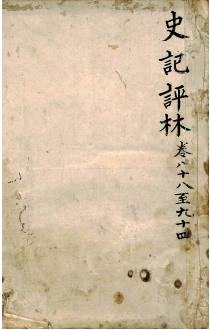 史記評林
卷八十八至九十四